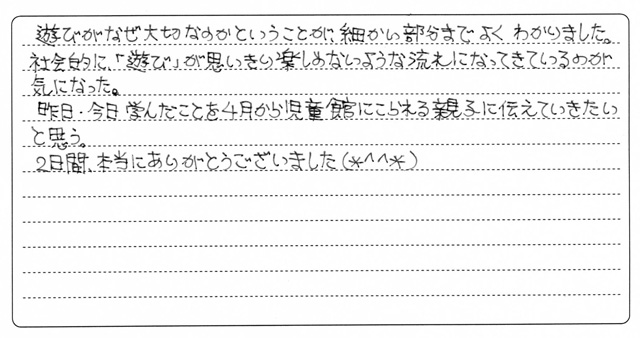 遊びがなぜ大切なのかということが、細かい部分までよくわかりました。
社会的に、「遊び」が思いきり楽しめないような流れになってきているのが
気になった。
昨日・今日学んだことを4月から児童館にこられる親子に伝えていきたい
と思う。
2日間、本当にありがとうございました(*^^*)